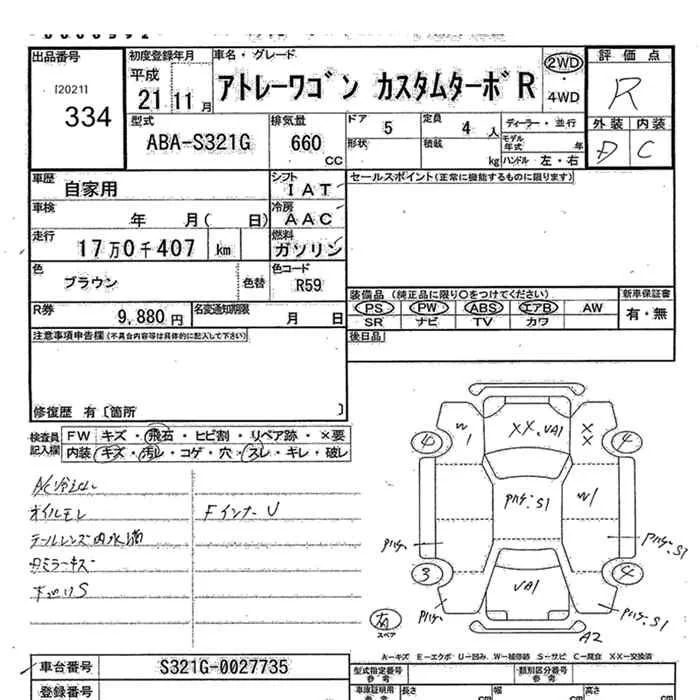 出品番号
I20211
334
初度登録年月
平成
21 11 月
車名・グレード
アトレーワゴン カスタムターボR
2WD
・
4WD
評価点
R
外装 内装
D C
型式
ABA-S321G
排気量
660
CC
ドア
5
形状
定員
4 人
積載
kg
ディーラー・並行
モデル年式 年
ハンドル 左・右
車歴
自家用
シフト
IAT
セールスポイント(正常に機能するものに限ります)
車検
年 月( 日)
冷房
AAC
走行
17万0千407 km
燃料
ガソリン
色
ブラウン
色替
色コード
R59
装備品 (純正品に限り○をつけてください)
新車保証書
PS PW ABS エアB AW
有・無
SR ナビ TV カワ
R券
9,880 円
名変通知期限
月 日
後日品
注意事項申告欄(不具合内容等は具体的に記入して下さい)
修復歴 有〔箇所 〕
検査員
記入欄
FW キズ・飛石・ヒビ割・リペア跡・×要
内装 キズ・汚レ・コゲ・穴・スレ・キレ・破レ
オイルモレ
FインナーU
テールレンズ内水滴
下回りS
W1
XX.VA1
XX
4
4
W1
S1
S1
3
4
VA1
S1
A2
有
スペア
A-キズ E-エクボ U-凹み W-補修跡 S-サビ C-腐食 XX-交換済
車台番号
S321G-0027735
型式指定番号
参考
類別区分番号
参考
登録番号
車庫証明用
参考
長さ
cm
幅
cm
高さ
cm